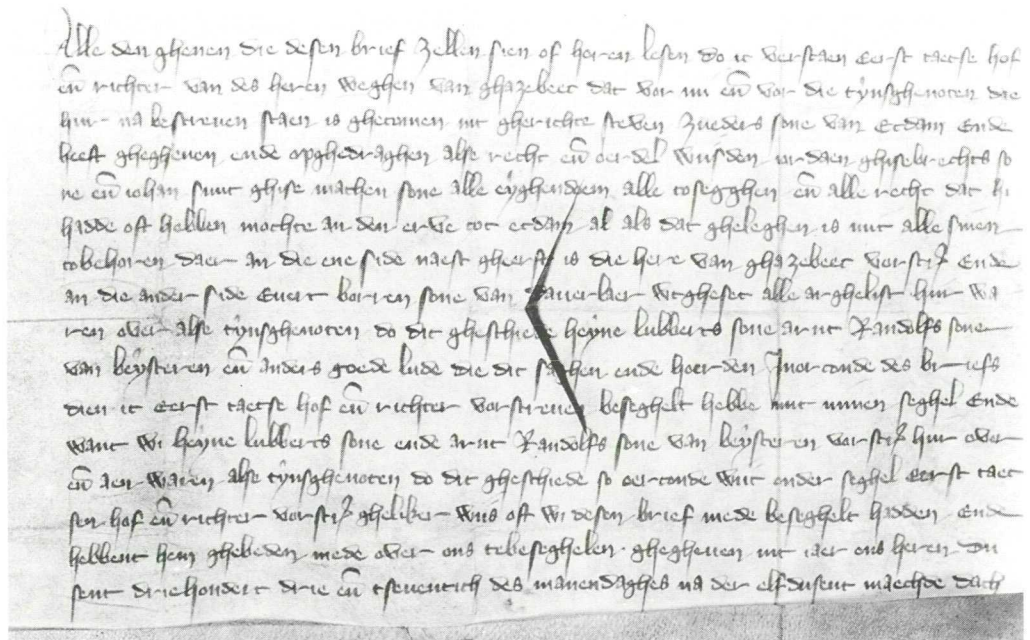 Alle den ghenen die desen brief zellen sien of horen lesen do ic verstaen Eerst taetse hof
eñ richter van des heren weghen van ghazebeec dat vor mi eñ vor die tynsghenoten die
hiir na bescreven staen is ghecomen int gherichte steven zueders sone van Ecdam Ende
heeft ghegheven ende opghedraghen alse recht eñ oerdel wiisden iordaen ghiselbrechts so
ne eñ iohan sunt ghise machen sone alle eyghendoem alle toseggen eñ alle recht dat hi
hadde oft hebben mochte an den erve tot ecdam al als dat gheleghen is mit alle sinen
tobehoren daer an die ene side naest gheerft is die here van ghazebeec vorscr Ende
an die ander side Evert borren sone van haverlaer wtgheset alle arghelist hiir wa
ren over alse tynsghenoten do dit gheschiede heyne lubberts sone arnt Randolfs sone
van beysteren eñ anders goede lude die dit saghen ende hoerden In orconde des briefs
dien ic Eerst taetse hof eñ richter vorscreven beseghelt hebbe mit minen seghel Ende
want wi heyne lubberts sone ende arnt Randolfs sone van beysteren vorscr hiir over
eñ aen waren alse tynsghenoten do dit gheschiede so oerconde wiit onder seghel Eerst taet
sen hof eñ richter vorscr gheliker wiis oft wi desen brief mede beseghelt hadden Ende
hebbent hem ghebeden mede over ons tebeseghelen ghegheven int iaer ons heren du
sent driehondert drie eñ tseventich des manendaghes na der elfdusent maechde dach